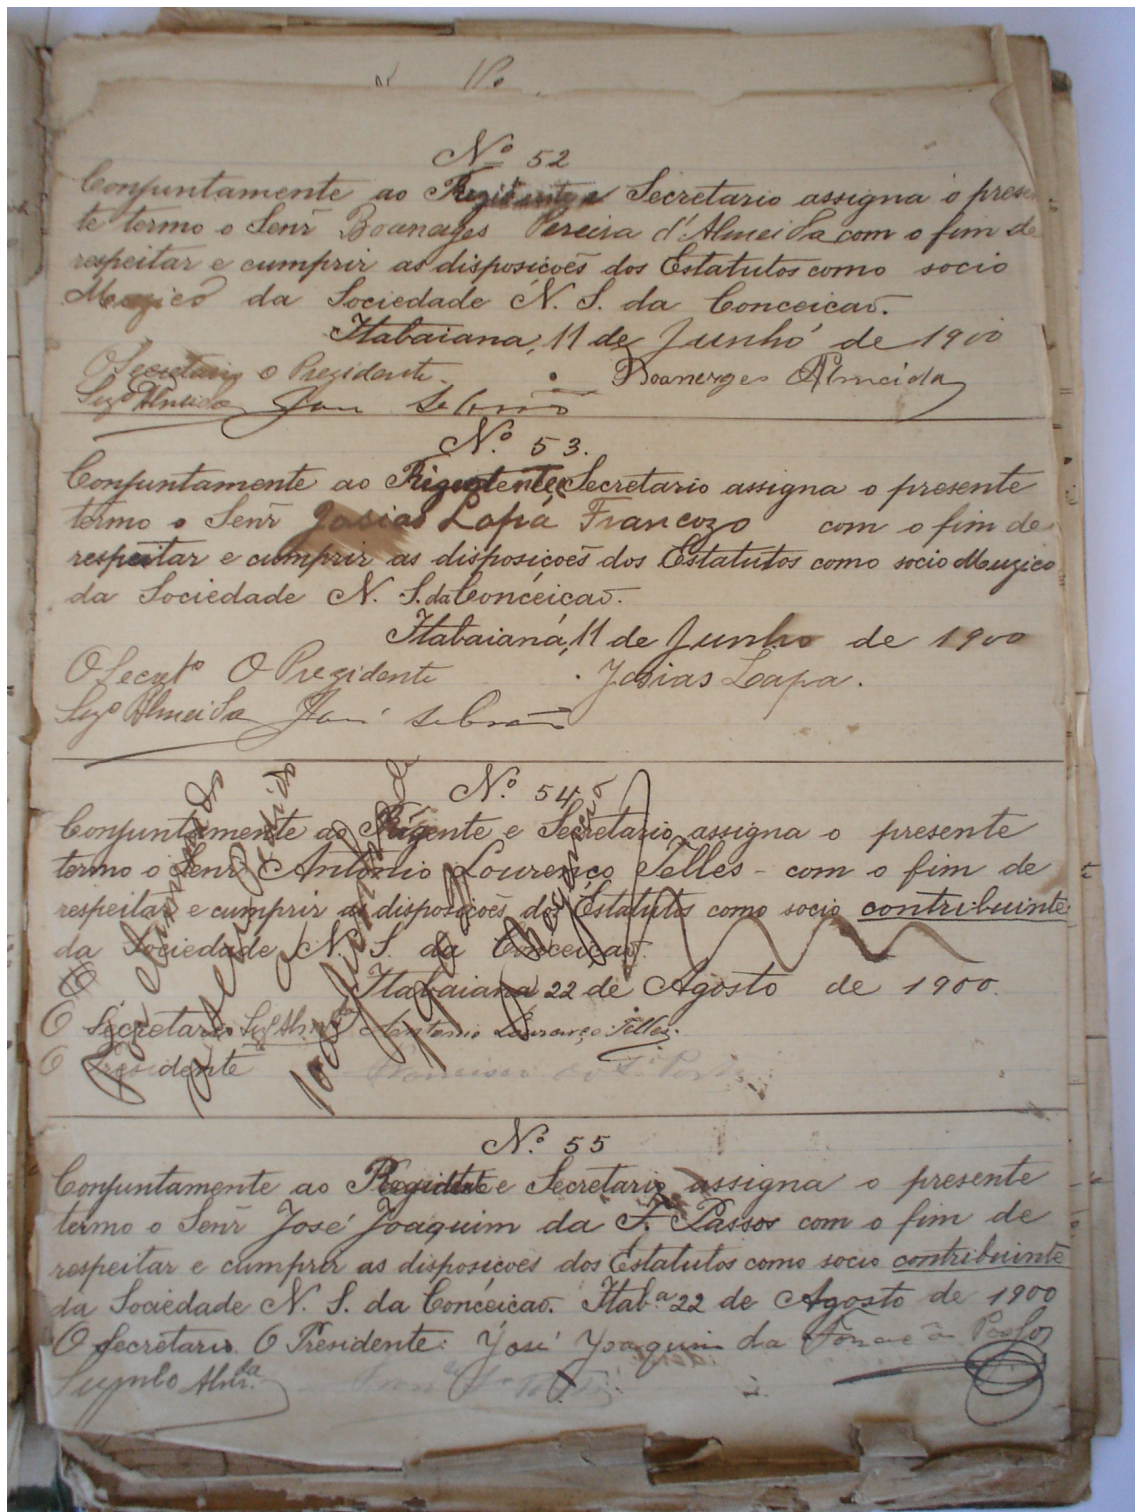 Nº 52
Conjuntamente ao Secretario assigna o presen
te termo o Senr Boanerges Pereira d'Almeida com o fim de
respeitar e cumprir as disposicoēs dos Estatutos como socio
Muzico da Sociedade N. S. da Conceicaō.
Itabaiana, 11 de Junho de 1900
O Secretario O Prezidente Boanerges Almeida
Almeida José Sebrão
Nº 53.
Conjuntamente ao Secretario assigna o presente
termo o Senr Josias Lapa Francozo com o fim de
respeitar e cumprir as disposicoēs dos Estatutos como socio Muzico
da Sociedade N. S. da Conceicaō.
Itabaiana, 11 de Junho de 1900
O Secretº O Prezidente Josias Lapa.
Almeida José Sebrão
Nº 54
Conjuntamente ao Regente e Secretario assigna o presente
termo o Senr Antonio Lourenço Telles - com o fim de
respeitar e cumprir as disposicoēs dos Estatutos como socio contribuinte
da Sociedade N. S. da Conceicaō.
Itabaiana 22 de Agosto de 1900.
O Secretario Antonio Lourenço Telles.
O Presidente
Foi eliminado
a seu pedido
Nº 55
Conjuntamente ao e Secretario assigna o presente
termo o Senr José Joaquim da F. Passos com o fim de
respeitar e cumprir as disposicoēs dos Estatutos como socio contribuinte
da Sociedade N. S. da Conceicaō. Itab.ª 22 de Agosto de 1900
O Secretario. O Presidente: José Joaquim da Passos